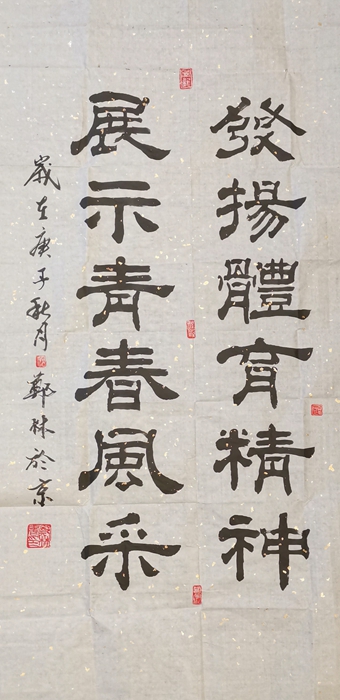 發揚體育精神
展示青春風采
歲在庚子秋月鄭林於京